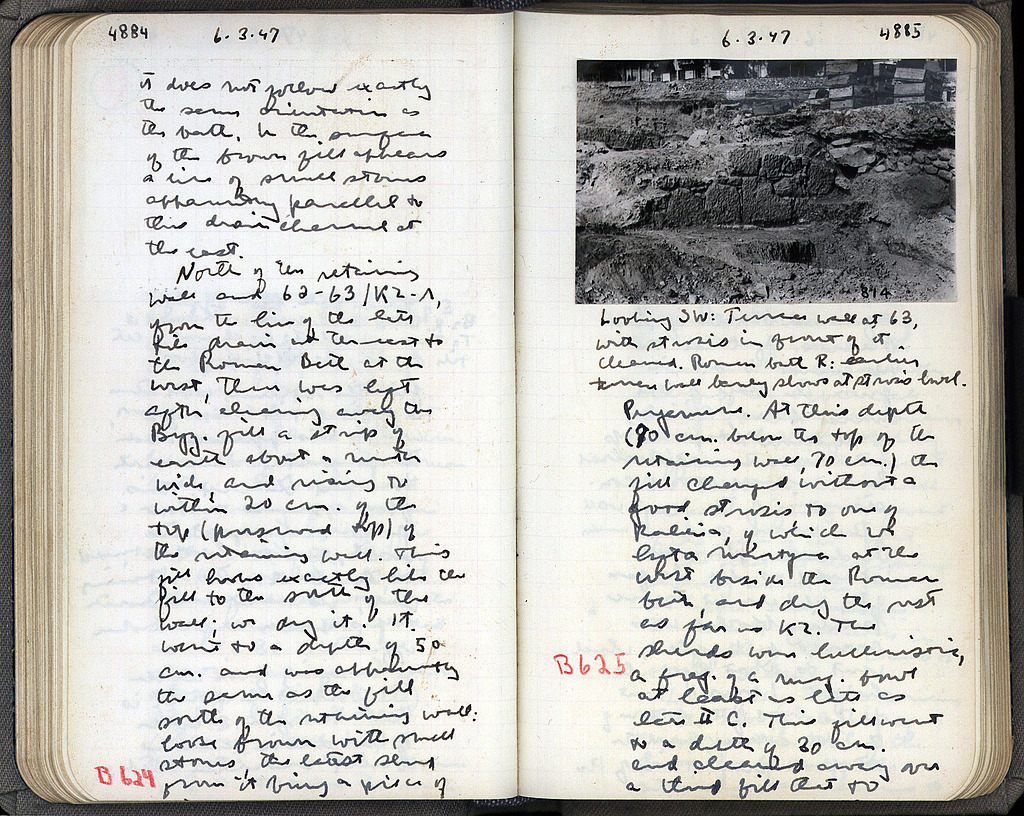 4884 6.3.47
it does not follow exactly
the same orientation as
the bath. In the surface
of the brown fill appears
a line of small stones
apparently parallel to
this drain channel at
the east.
North of the retaining
wall and 62-63/ΚΖ-Λ,
from the line of the late
tile drain at the east to
the Roman Bath at the
west, there was left
after clearing away the
Byz. fill a strip of
earth about a meter
wide, and rising to
within 20 cm. of the
top (preserved top) of
the retaining wall. This
fill looks exactly like the
fill to the south of the
wall; we dug it. It
went to a depth of 50
cm. and was apparently
the same as the fill
south of the retaining wall:
loose brown with small
stones, the latest sherd
B624
from it being a piece of
6.3.47 4885
814
Looking SW: Terrace wall at 63,
with strosis in front of it
cleaned. Roman bath R: earlier
terrace wall barely shows at strosis level.
Pergamene. At this depth
(80 cm. below the top of the
retaining wall, 70 cm.) the
fill changed without a
good strosis to one of
, of which we
left a martyra at the
west beside the Roman
bath, and dug the rest
as far as ΚΖ. The
sherds were hellenistic,
B625
a frag. of a meg. bowl
at least as late as
late II C. This fill went
to a depth of 30 cm.
and cleared away over
a third fill that to